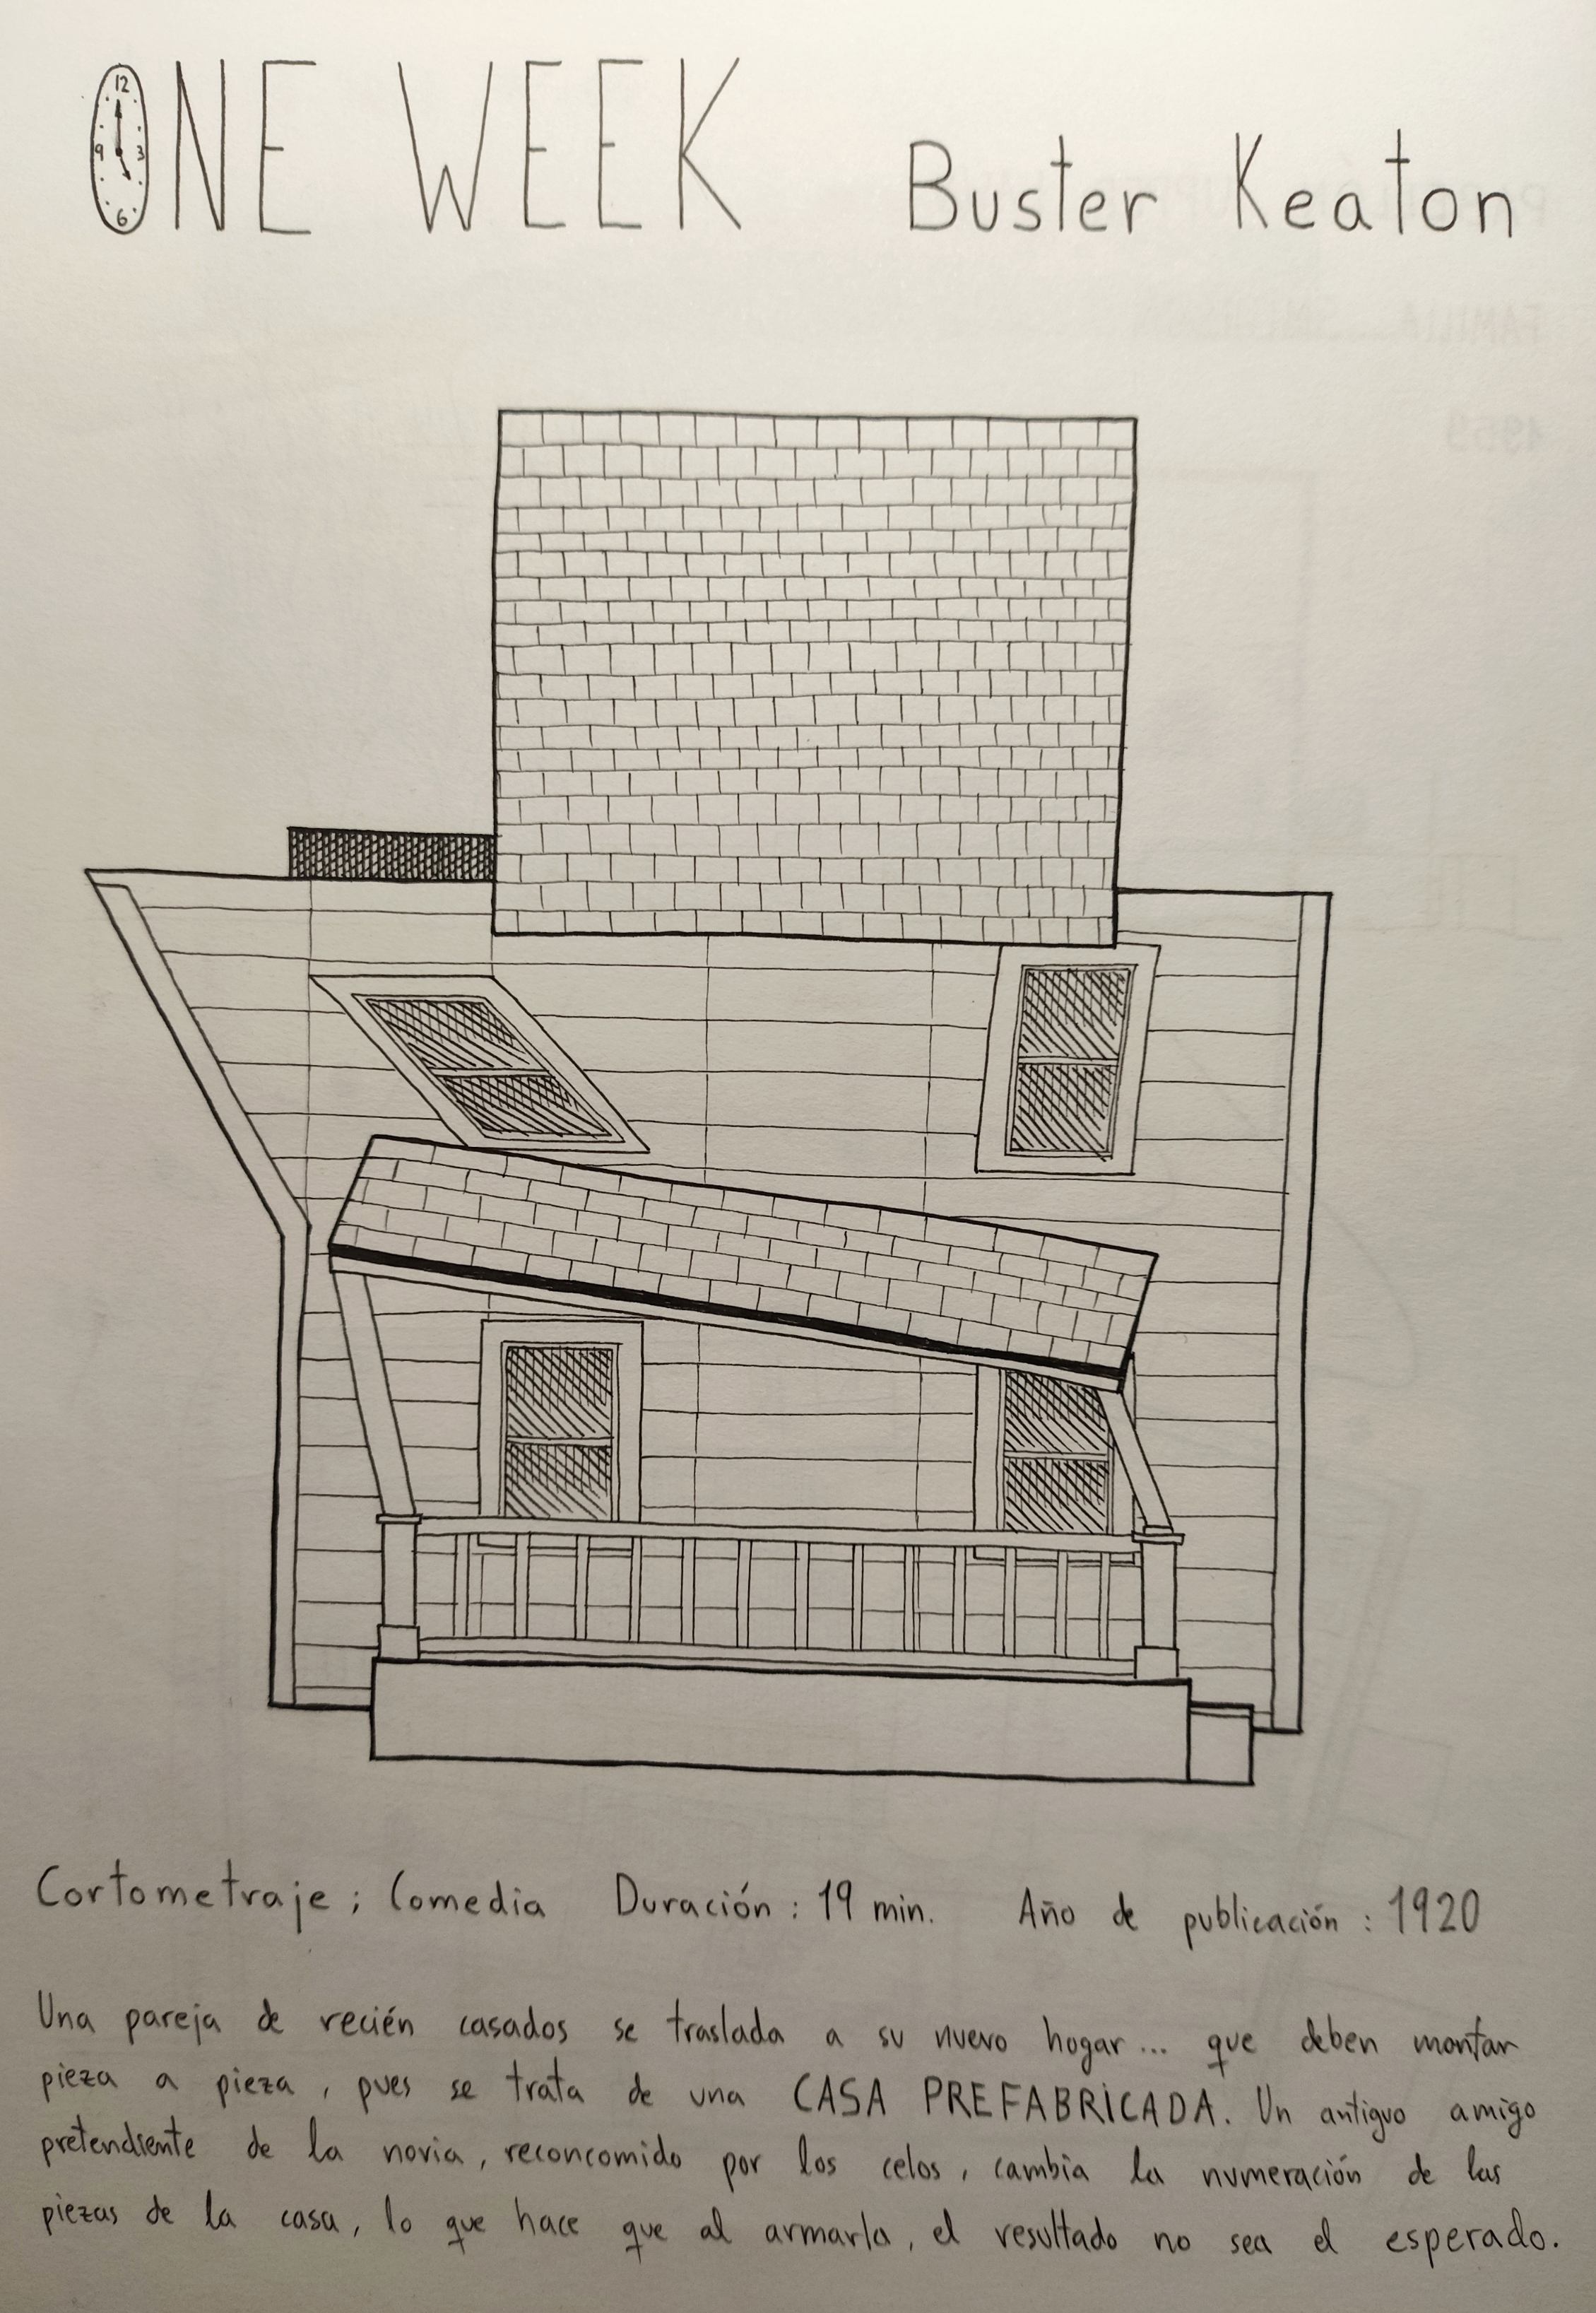 ONE WEEK Buster Keaton
12
9 3
6
FAMILIA
1969
Cortometraje; Comedia Duración: 19 min. Año de publicación: 1920
Una pareja de recién casados se traslada a su nuevo hogar... que deben montar
pieza a pieza, pues se trata de una CASA PREFABRICADA. Un antiguo amigo
pretendiente de la novia, reconcomido por los celos, cambia la numeración de las
piezas de la casa, lo que hace que al armarla, el resultado no sea el esperado.